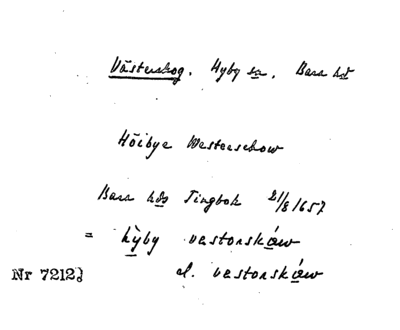 Västerskog. Hyby sn. Bara hd
Höibye Westerschow
Bara hds Tingbok 21/8 1657
= hỳby vestorskáw
el. vestorskáw
Nr 7212